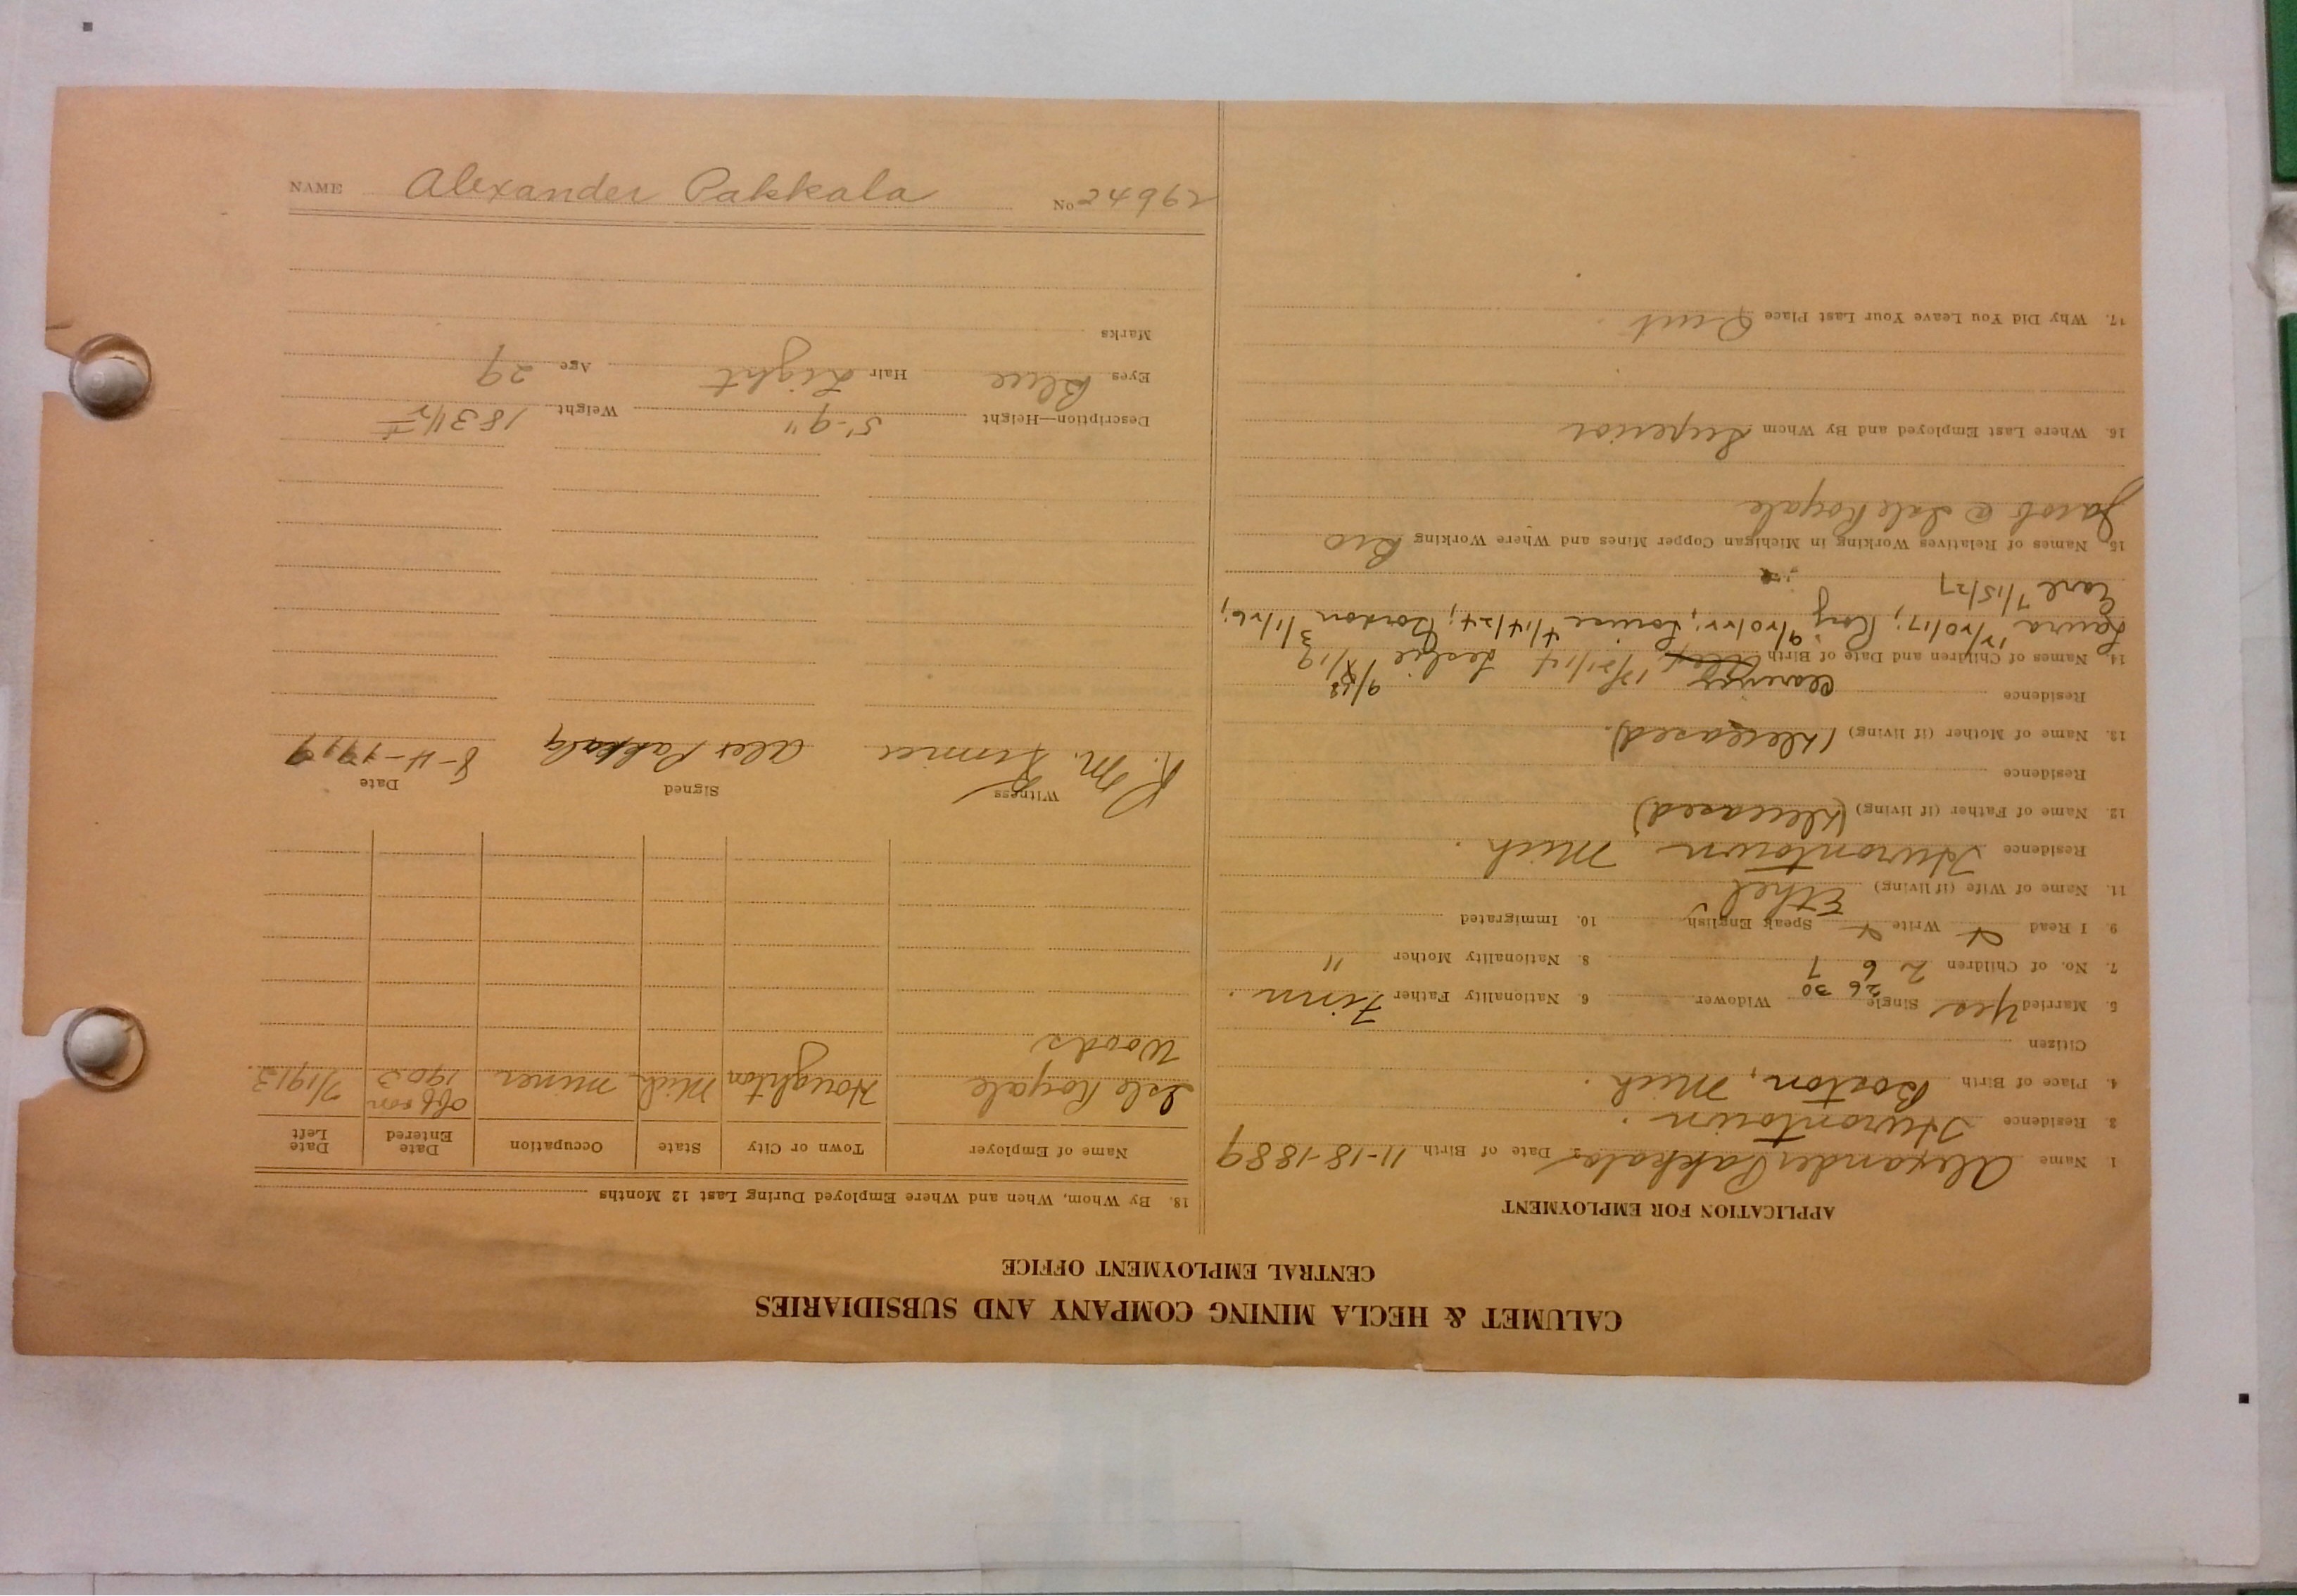 CALUMET & HECLA MINING COMPANY AND SUBSIDIARIES
CENTRAL EMPLOYMENT OFFICE
APPLICATION FOR EMPLOYMENT
1. Name Alexander Pakkala 2. Date of Birth 11-18-1889
3. Residence Hurontown.
4. Place of Birth Boston, Mich.
Citizen
5. Married Yes Single Widower 6. Nationality Father Finn.
26 30
7. No. of Children 2 6 7 8. Nationality Mother "
9. I Read Write Speak English 10. Immigrated
11. Name of Wife (if living) Ethel
Residence Hurontown Mich.
12. Name of Father (if living) (Deceased)
Residence
13. Name of Mother (if living) (Deceased).
Residence
Clarence
14. Names of Children and Date of Birth Alex 12/21/14 Leslie
Laura 12/20/17; Roy 9/20/22; Louise 4/14/24; Gordon 3/1/26;
Earl 7/15/27
15. Names of Relatives Working in Michigan Copper Mines and Where Working Bro
Jacob @ Isle Royale
16. Where Last Employed and By Whom Superior
17. Why Did You Leave Your Last Place Quit.
18. By Whom, When and Where Employed During Last 12 Months
Name of Employer Town or City State Occupation Date Entered Date Left
Isle Royale Houghton Mich miner off & on 1903 7/1913
Woods
Witness Signed Date
R. M. Alex Pakkala 8-4-1919
Description—Height 5'-9" Weight 183 1/2
Eyes Blue Hair Light Age 29
Marks
NAME Alexander Pakkala No 24962